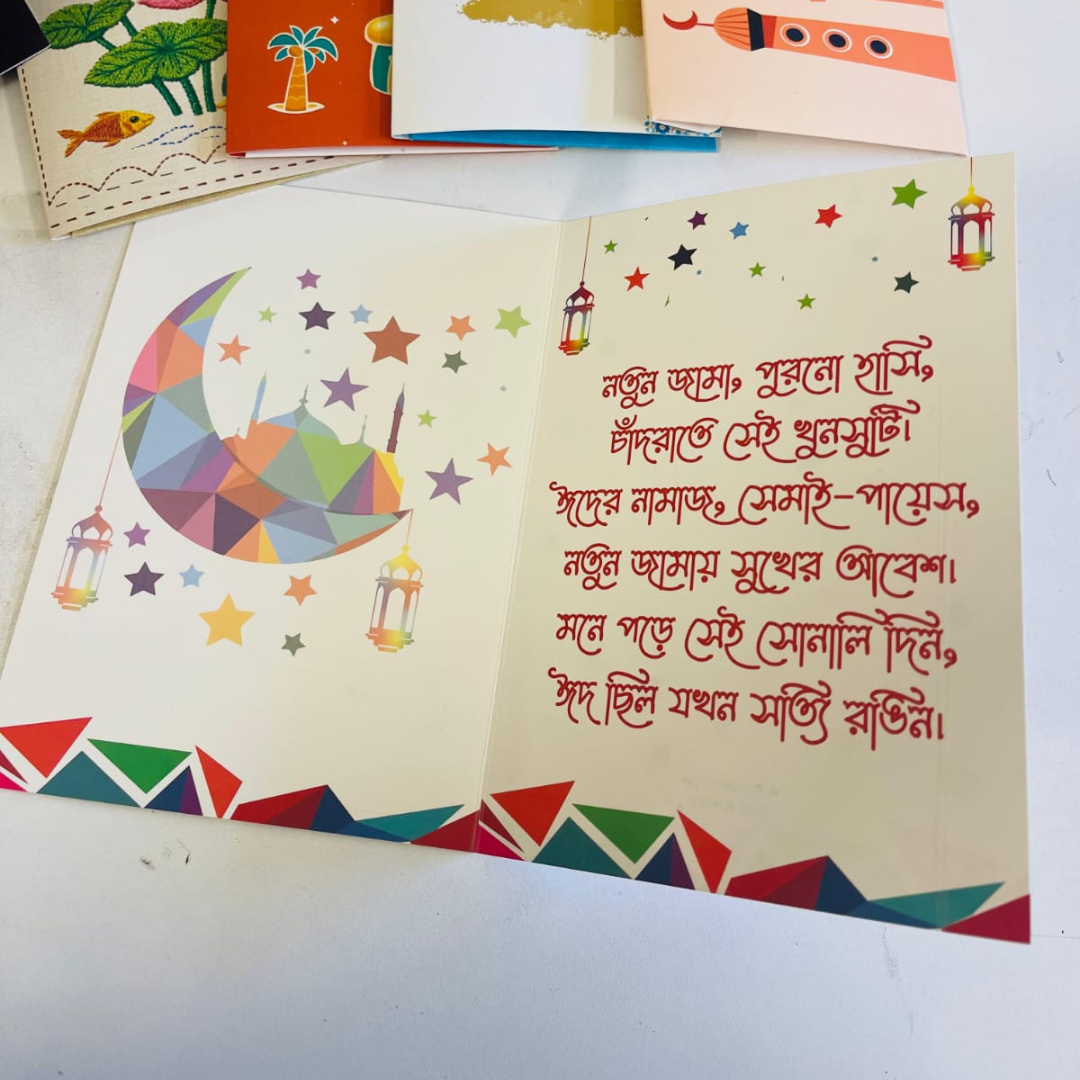 নতুন জামা, পুরনো হাসি,
চাঁদরাতে সেই খুনসুটি।
ঈদের নামাজ, সেমাই-পায়েস,
নতুন জামায় সুখের আবেশ।
মনে পড়ে সেই সোনালি দিন,
ঈদ ছিল যখন সত্যি রঙিন।